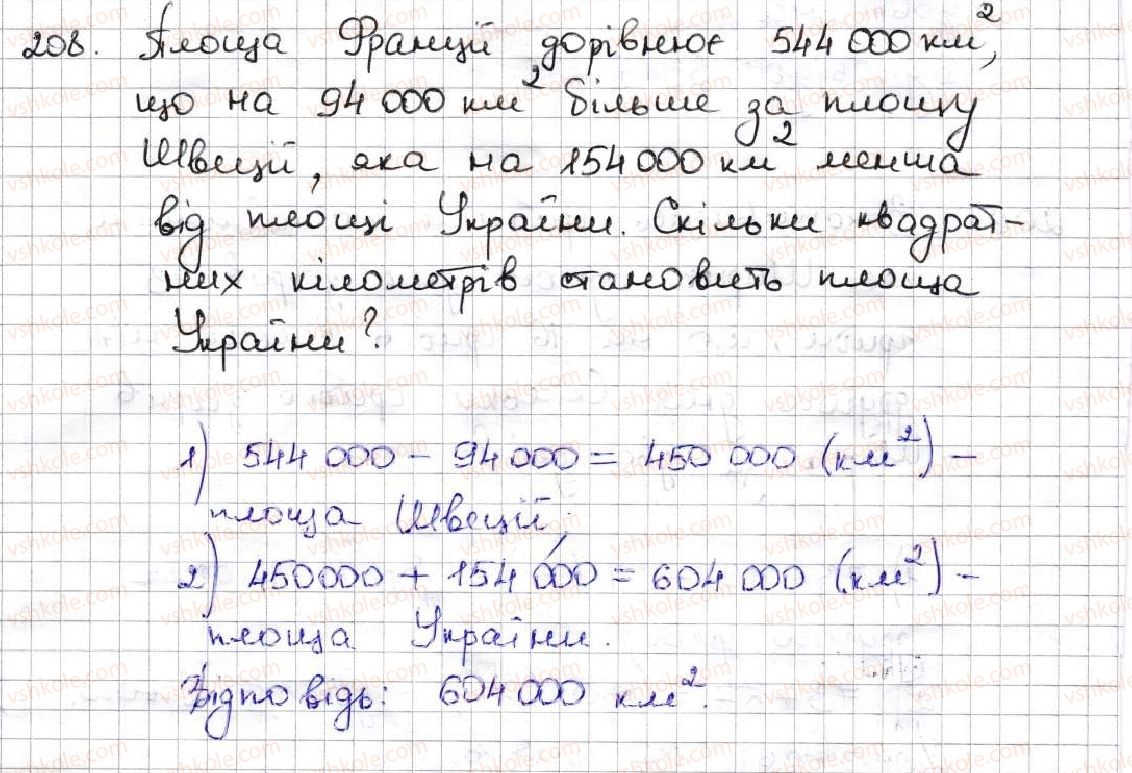 208. Площа Франції дорівнює 544 000 км²,
що на 94 000 км² більше за площу
Швеції, яка на 154 000 км² менша
від площі України. Скільки квадрат-
них кілометрів становить площа
України?
1) 544 000 - 94 000 = 450 000 (км²) -
площа Швеції.
2) 450000 + 154 000 = 604 000 (км²) -
площа України.
Відповідь: 604 000 км².